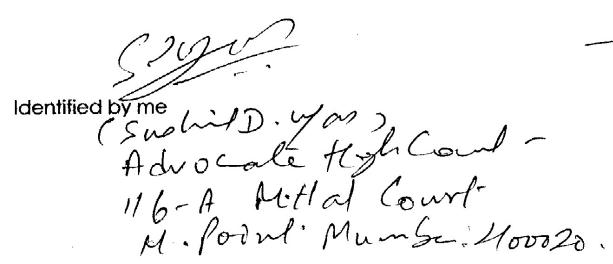 Identified by me
(Sushil D. Vyas)
Advocate High Court -
116-A Mittal Court
M. Point. Mumbai. 400020.